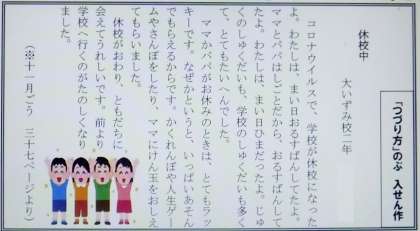 「つづり方」のぶ　入せん作
休校中
大いずみ校二年
コロナウイルスで、学校が休校になった
よ。わたしは、まい日おるすばんしてたよ。
ママとパパはしごとだから、おるすばんして
たよ。わたしは、まい日ひまだったよ。じゅ
くのしゅくだいも、学校のしゅくだいも多く
て、とてもたいへんでした。
ママかパパがお休みのときは、とてもラッ
キーです。なぜかというと、いっぱいあそん
でもらえるからです。かくれんぼや人生ゲー
ムやさんぽをしたり、ママにけん玉をおしえ
てもらいました。
休校がおわり、ともだちに
会えてうれしいです。前より
学校へ行くのがたのしくなり
ました。
（※十一月ごう　三十七ページより）